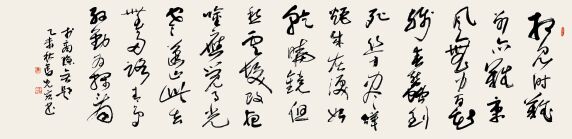 相見時難
別亦難東
風無力百花
殘春蠶到
死絲方盡蠟
炬成灰淚始
乾曉鏡但
愁雲鬢改夜
吟應覺月光
寒蓬山此去
無多路青鳥
殷勤為探看
李商隱無題
乙未秋